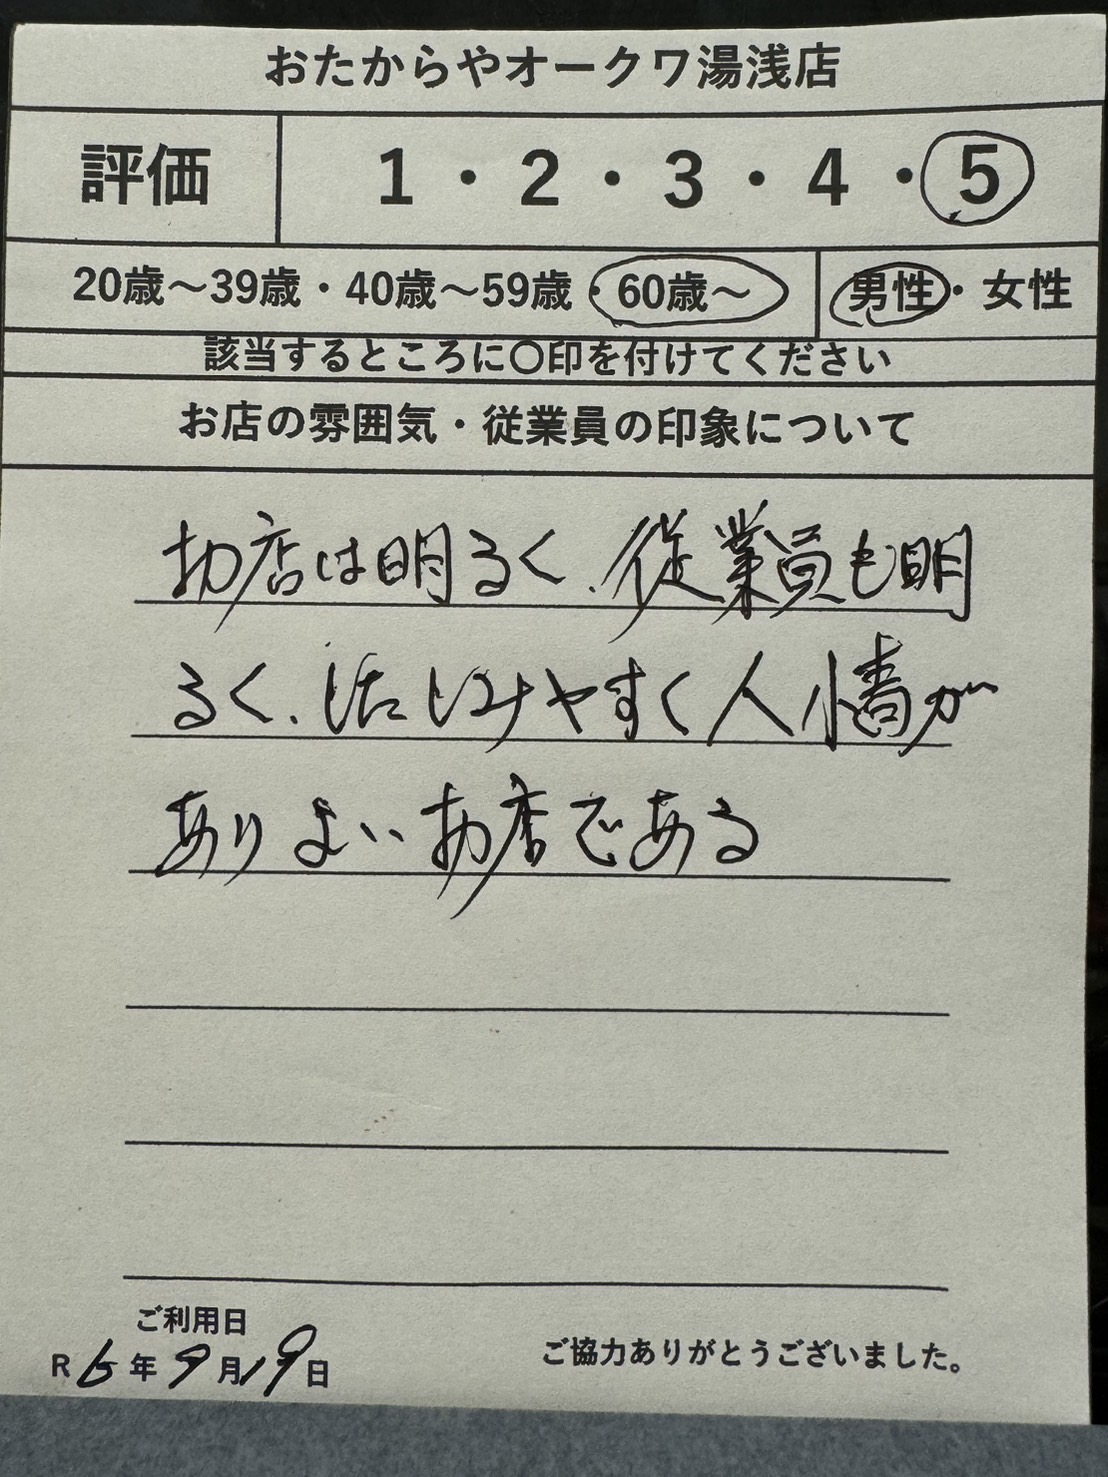 おたからやオークワ湯浅店
評価 1・2・3・4・5
20歳～39歳・40歳～59歳・60歳～ 男性・女性
該当するところに〇印を付けてください
お店の雰囲気・従業員の印象について
お店は明るく、従業員も明
るく、したしみやすく人情が
ありよいお店である
ご利用日
R6年9月19日
ご協力ありがとうございました。